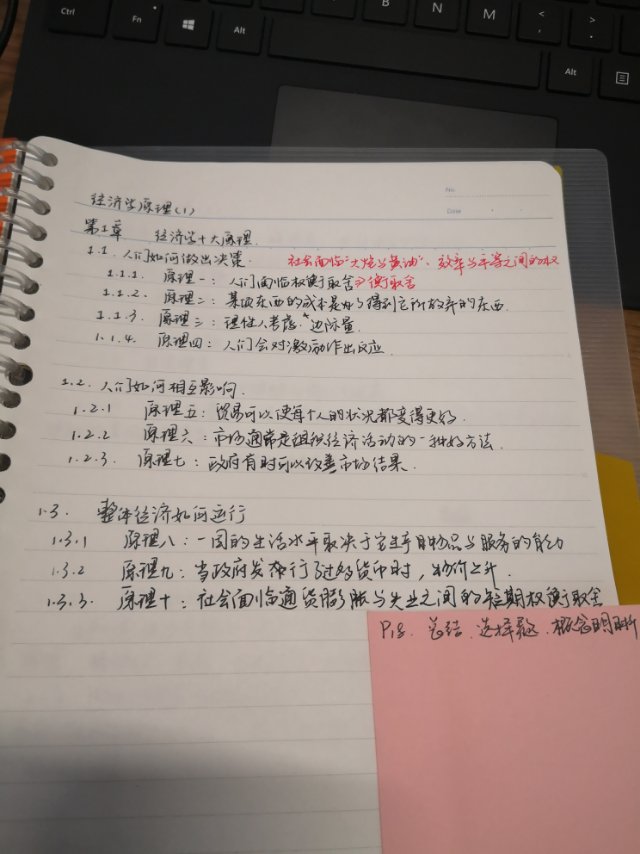 Ctrl
Fn
Alt
B
N
M
Alt
No.
Date
经济学原理(1)
第1章 经济学十大原理.
1.1. 人们如何做出决策. 社会面临"大炮与黄油"、效率与平等之间的权衡取舍
1.1.1. 原理一：人们面临权衡取舍
1.1.2. 原理二：某种东西的成本是为了得到它所放弃的东西.
1.1.3. 原理三：理性人考虑边际量
1.1.4. 原理四：人们会对激励作出反应.
1.2. 人们如何相互影响.
1.2.1 原理五：贸易可以使每个人的状况都变得更好.
1.2.2 原理六：市场通常是组织经济活动的一种好方法.
1.2.3. 原理七：政府有时可以改善市场结果.
1.3. 整体经济如何运行
1.3.1 原理八：一国的生活水平取决于它生产物品与服务的能力
1.3.2 原理九：当政府发行了过多货币时，物价上升.
1.3.3. 原理十：社会面临通货膨胀与失业之间的短期权衡取舍
总结. 选择题. 概念明晰